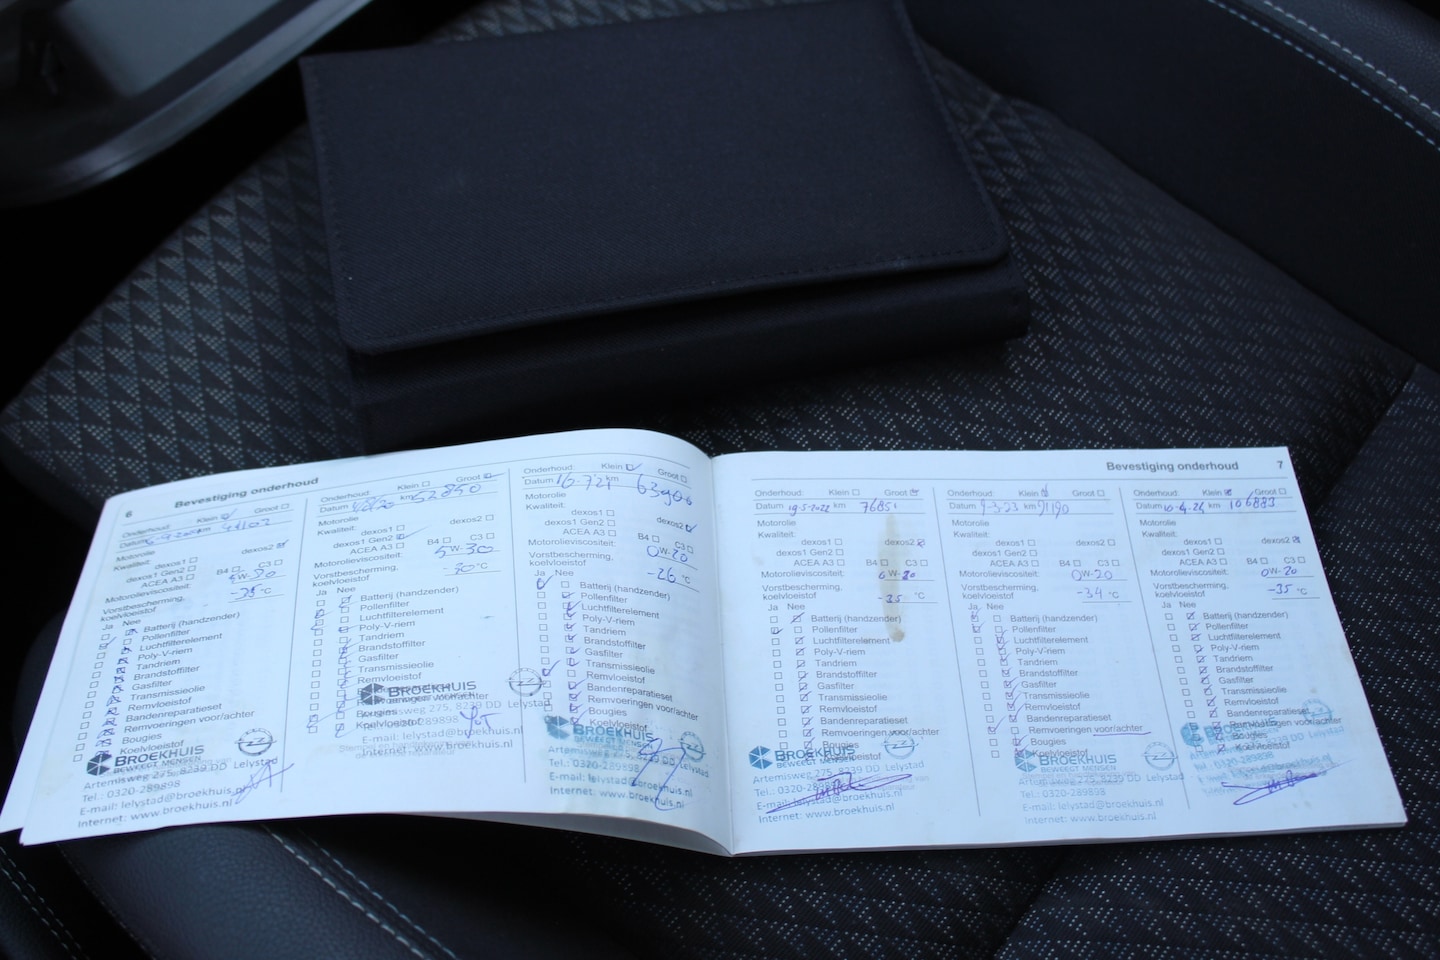 6
Bevestiging onderhoud
Onderhoud: Klein Groot
Datum km
Motorolie
Kwaliteit: dexos2
dexos1
dexos1 Gen2
ACEA A3 B4 C3
Motorolieviscositeit:
Vorstbescherming,
koelvloeistof °C
Ja Nee
Batterij (handzender)
Pollenfilter
Luchtfilterelement
Poly-V-riem
Tandriem
Brandstoffilter
Gasfilter
Transmissieolie
Remvloeistof
Bandenreparatieset
Remvoeringen voor/achter
Bougies
Koelvloeistof
BROEKHUIS
BEWEEGT MENSEN
Artemisweg 275, 8239 DD Lelystad
Tel.: 0320-289898
E-mail: lelystad@broekhuis.nl
Internet: www.broekhuis.nl
Onderhoud: Klein Groot
Datum km 62850
Motorolie
Kwaliteit: dexos2
dexos1
dexos1 Gen2
ACEA A3 B4 C3
Motorolieviscositeit: 5W-30
Vorstbescherming,
koelvloeistof °C
Ja Nee
Batterij (handzender)
Pollenfilter
Luchtfilterelement
Poly-V-riem
Tandriem
Brandstoffilter
Gasfilter
Transmissieolie
Remvloeistof
Bougies
Koelvloeistof
BROEKHUIS
Artemisweg 275, 8239 DD Lelystad
E-mail: lelystad@broekhuis.nl
Internet: www.broekhuis.nl
Onderhoud: Klein Groot
Datum 16-7-21 km 63906
Motorolie
Kwaliteit:
dexos1 dexos2
dexos1 Gen2
ACEA A3 B4 C3
Motorolieviscositeit: 0W-20
Vorstbescherming,
koelvloeistof -26 °C
Ja Nee
Batterij (handzender)
Pollenfilter
Luchtfilterelement
Poly-V-riem
Tandriem
Brandstoffilter
Gasfilter
Transmissieolie
Remvloeistof
Bandenreparatieset
Remvoeringen voor/achter
Bougies
Koelvloeistof
Tel.: 0320-289898
E-mail: lelystad@broekhuis.nl
Internet: www.broekhuis.nl
Bevestiging onderhoud 7
Onderhoud: Klein Groot
Datum 19-5-2022 km 76851
Motorolie
Kwaliteit:
dexos1 dexos2
dexos1 Gen2
ACEA A3 B4 C3
Motorolieviscositeit: 0W-20
Vorstbescherming,
koelvloeistof -35 °C
Ja Nee
Batterij (handzender)
Pollenfilter
Luchtfilterelement
Poly-V-riem
Tandriem
Brandstoffilter
Gasfilter
Transmissieolie
Remvloeistof
Bandenreparatieset
Remvoeringen voor/achter
Bougies
Koelvloeistof
BROEKHUIS
BEWEEGT MENSEN
Artemisweg 275, 8239 DD Lelystad
Tel.: 0320-289898
E-mail: lelystad@broekhuis.nl
Internet: www.broekhuis.nl
Onderhoud: Klein Groot
Datum km 91190
Motorolie
Kwaliteit:
dexos1 dexos2
dexos1 Gen2
ACEA A3 B4 C3
Motorolieviscositeit: 0W-20
Vorstbescherming,
koelvloeistof -34 °C
Ja Nee
Batterij (handzender)
Pollenfilter
Luchtfilterelement
Poly-V-riem
Tandriem
Brandstoffilter
Gasfilter
Transmissieolie
Remvloeistof
Bandenreparatieset
Remvoeringen voor/achter
Bougies
Koelvloeistof
BROEKHUIS
BEWEEGT MENSEN
Artemisweg 275, 8239 DD Lelystad
Tel.: 0320-289898
E-mail: lelystad@broekhuis.nl
Internet: www.broekhuis.nl
Onderhoud: Klein Groot
Datum 10-4-24 km 106883
Motorolie
Kwaliteit:
dexos1 dexos2
dexos1 Gen2
ACEA A3 B4 C3
Motorolieviscositeit: 0W-20
Vorstbescherming,
koelvloeistof -35 °C
Ja Nee
Batterij (handzender)
Pollenfilter
Luchtfilterelement
Poly-V-riem
Tandriem
Brandstoffilter
Gasfilter
Transmissieolie
Remvloeistof
Bandenreparatieset
Remvoeringen voor/achter
Bougies
Koelvloeistof